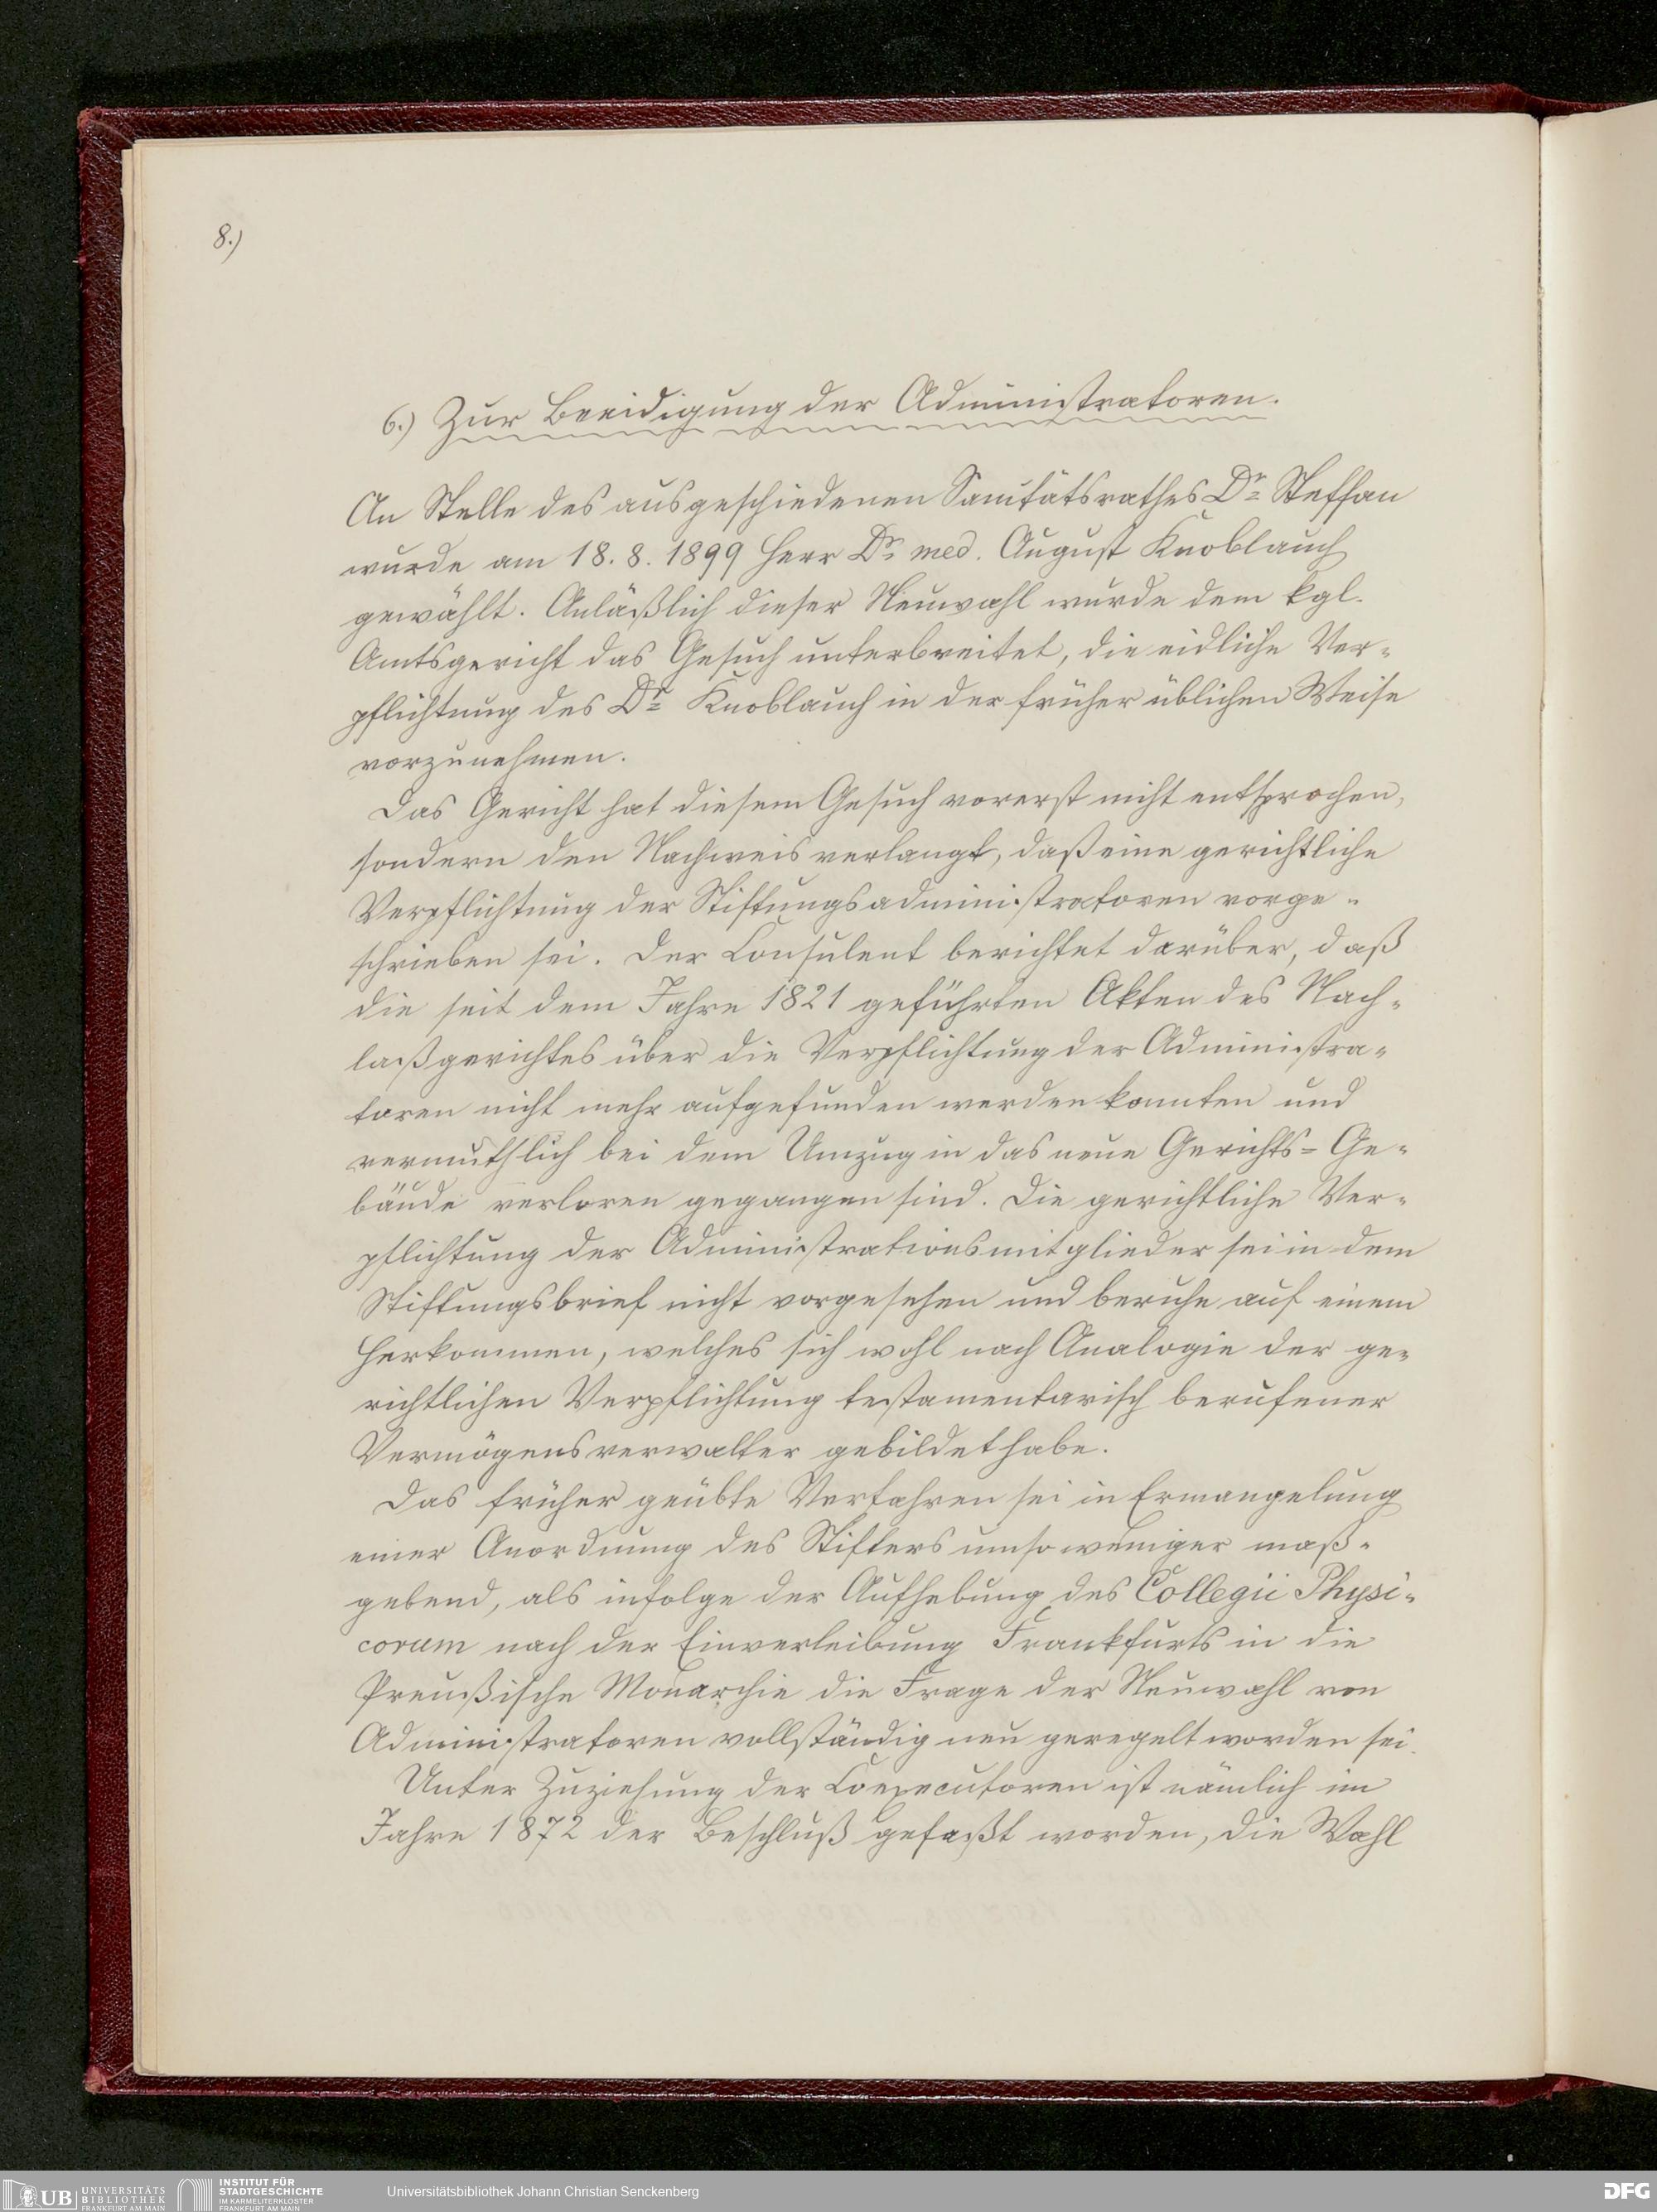 8.)
6.) Zur Beeidigung der Administratoren.
An Stelle des ausgeschiedenen Sanitätsrathes Dr. Steffan
wurde am 18. 8. 1899 Herr Dr. med. August Knoblauch
gewählt. Anläßlich dieser Neuwahl wurde dem kgl.
Amtsgericht das Gesuch unterbreitet, die eidliche Ver-
pflichtung des Dr. Knoblauch in der früher üblichen Weise
vorzunehmen.
Das Gericht hat diesem Gesuch vorerst nicht entsprochen,
sondern den Nachweis verlangt, daß eine gerichtliche
Verpflichtung der Stiftungsadministratoren vorge-
schrieben sei. Der Consulent berichtet darüber, daß
die seit dem Jahre 1821 geführten Akten des Nach-
laßgerichtes über die Verpflichtung der Administra-
toren nicht mehr aufgefunden werden konnten und
vermuthlich bei dem Umzug in das neue Gerichts-Ge-
bäude verloren gegangen sind. Die gerichtliche Ver-
pflichtung der Administrationsmitglieder sei in dem
Stiftungsbrief nicht vorgesehen und beruhe auf einem
Herkommen, welches sich wohl nach Analogie der ge-
richtlichen Verpflichtung testamentarisch berufener
Vermögensverwalter gebildet habe.
Das früher geübte Verfahren sei in Ermangelung
einer Anordnung des Stifters umso weniger maß-
gebend, als infolge der Aufhebung des Collegii Physi-
corum nach der Einverleibung Frankfurts in die
Preußische Monarchie die Frage der Neuwahl von
Administratoren vollständig neu geregelt worden sei.
Unter Zuziehung der Coexecutoren ist nämlich im
Jahre 1872 der Beschluß gefaßt worden, die Wahl
UB UNIVERSITÄTS
BIBLIOTHEK
FRANKFURT AM MAIN
INSTITUT FÜR
STADTGESCHICHTE
IM KARMELITERKLOSTER
FRANKFURT AM MAIN
Universitätsbibliothek Johann Christian Senckenberg
DFG